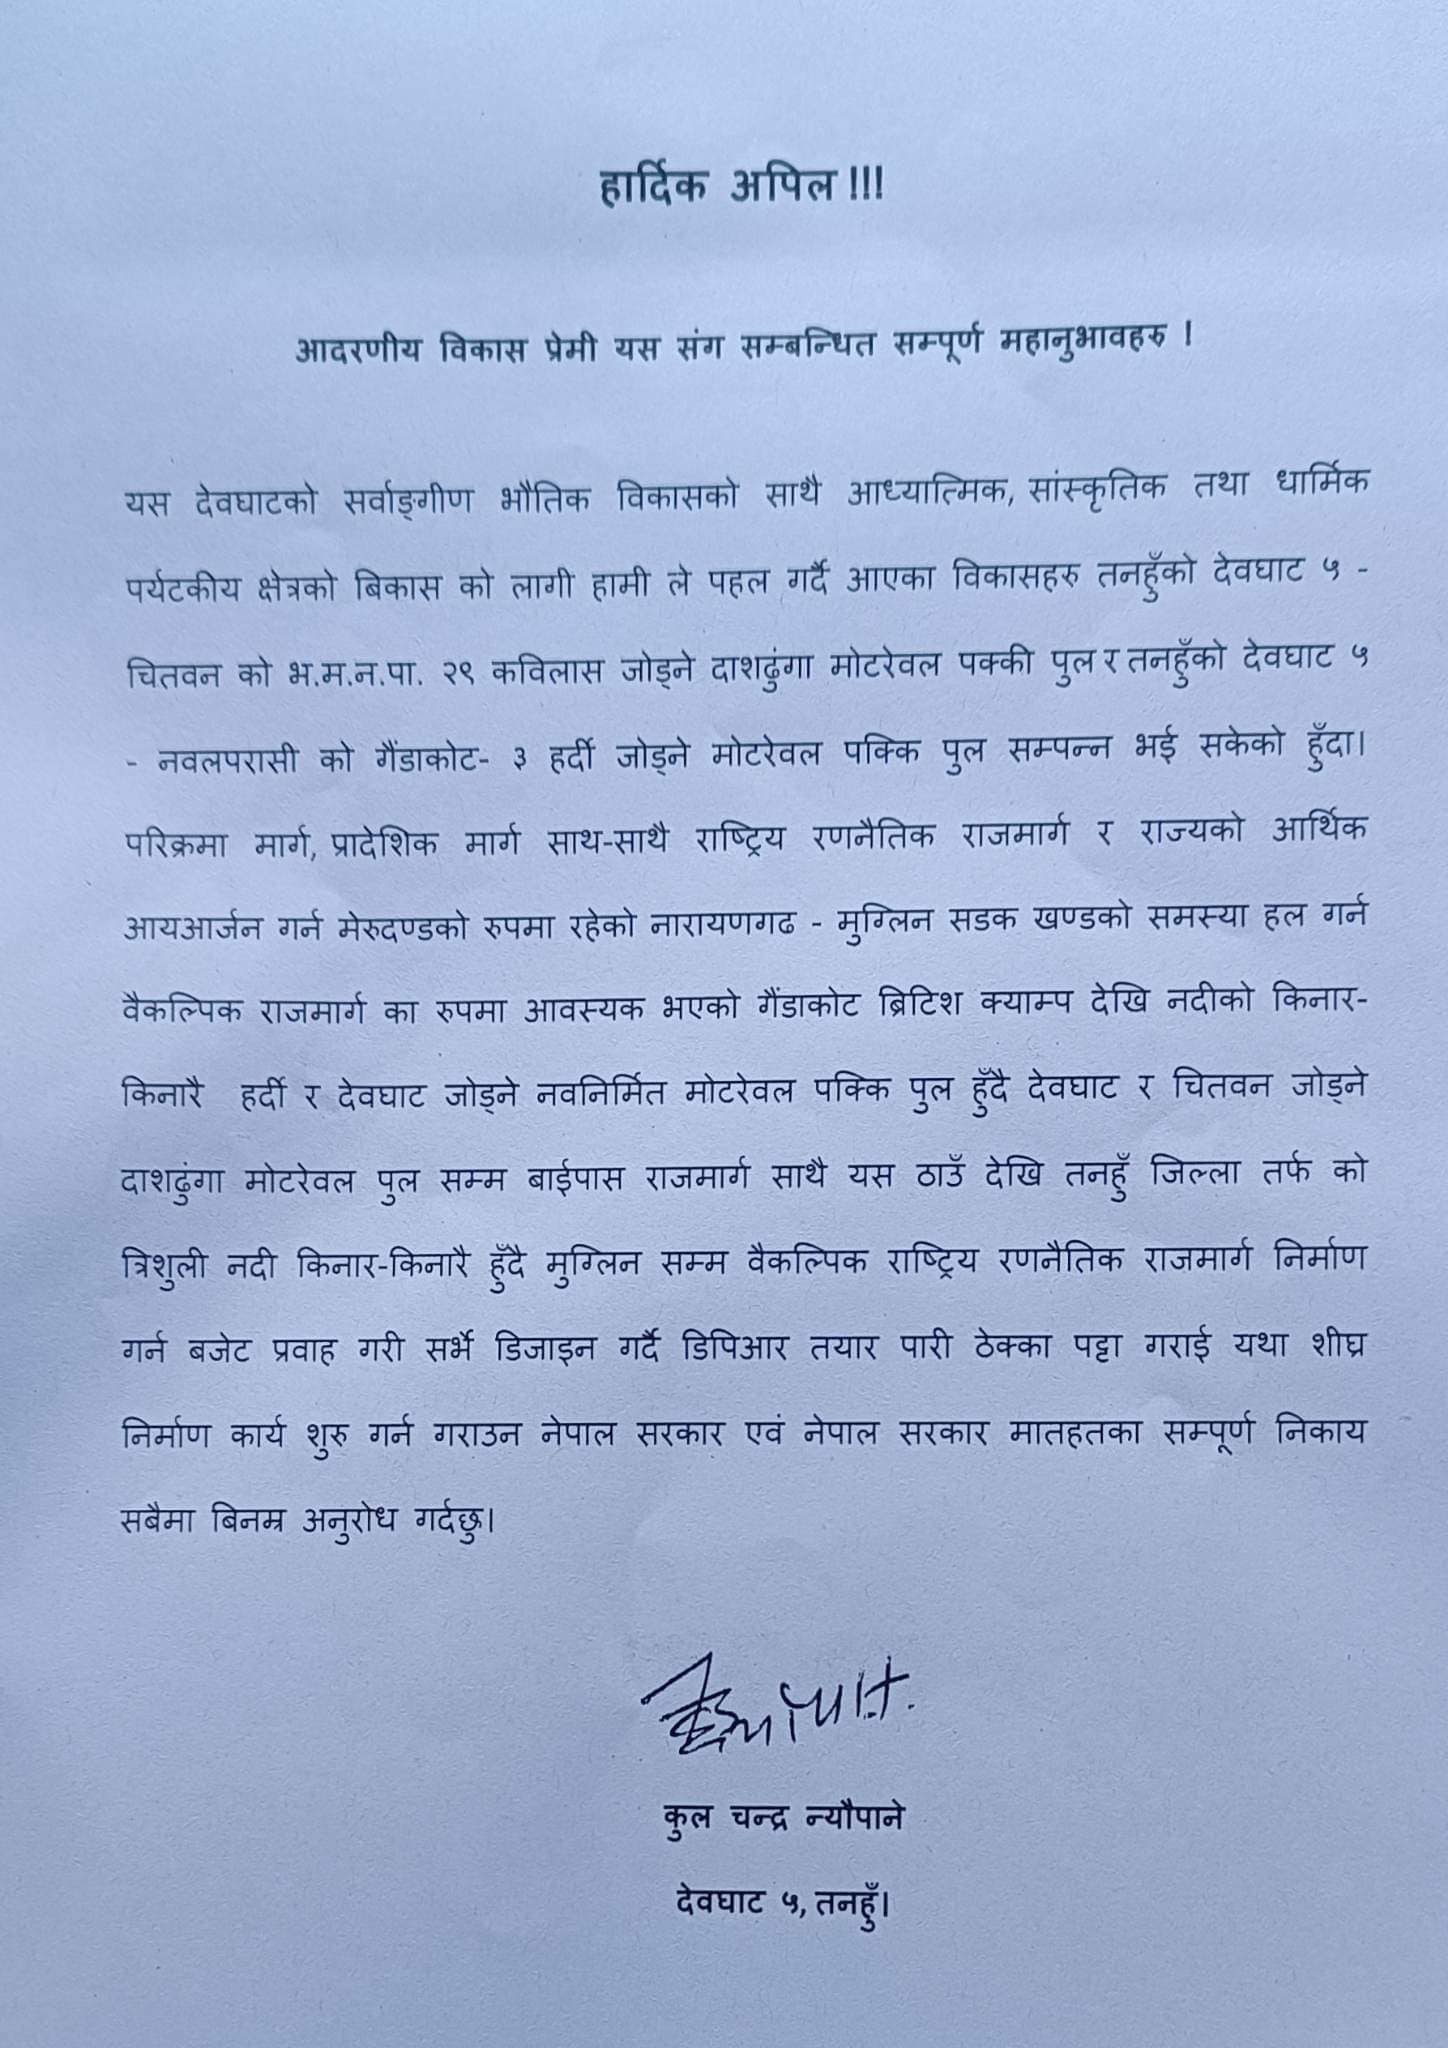 हार्दिक अपिल !!!
आदरणीय विकास प्रेमी यस संग सम्बन्धित सम्पूर्ण महानुभावहरु ।
यस देवघाटको सर्वाङ्गीण भौतिक विकासको साथै आध्यात्मिक, सांस्कृतिक तथा धार्मिक
पर्यटकीय क्षेत्रको बिकास को लागी हामी ले पहल गर्दै आएका विकासहरु तनहुँको देवघाट ५ -
चितवन को भ.म.न.पा. २९ कविलास जोड्ने दाशढुंगा मोटरेवल पक्की पुल र तनहुँको देवघाट ५
- नवलपरासी को गैंडाकोट- ३ हर्दी जोड्ने मोटरेवल पक्कि पुल सम्पन्न भई सकेको हुँदा।
परिक्रमा मार्ग, प्रादेशिक मार्ग साथ-साथै राष्ट्रिय रणनैतिक राजमार्ग र राज्यको आर्थिक
आयआर्जन गर्न मेरुदण्डको रुपमा रहेको नारायणगढ - मुग्लिन सडक खण्डको समस्या हल गर्न
वैकल्पिक राजमार्ग का रुपमा आवस्यक भएको गैंडाकोट ब्रिटिश क्याम्प देखि नदीको किनार-
किनारै हर्दी र देवघाट जोड्ने नवनिर्मित मोटरेवल पक्कि पुल हुँदै देवघाट र चितवन जोड्ने
दाशढुंगा मोटरेवल पुल सम्म बाईपास राजमार्ग साथै यस ठाउँ देखि तनहुँ जिल्ला तर्फ को
त्रिशुली नदी किनार-किनारै हुँदै मुग्लिन सम्म वैकल्पिक राष्ट्रिय रणनैतिक राजमार्ग निर्माण
गर्न बजेट प्रवाह गरी सर्भे डिजाइन गर्दै डिपिआर तयार पारी ठेक्का पट्टा गराई यथा शीघ्र
निर्माण कार्य शुरु गर्न गराउन नेपाल सरकार एवं नेपाल सरकार मातहतका सम्पूर्ण निकाय
सबैमा बिनम्र अनुरोध गर्दछु।
कुल चन्द्र न्यौपाने
देवघाट ५, तनहुँ।